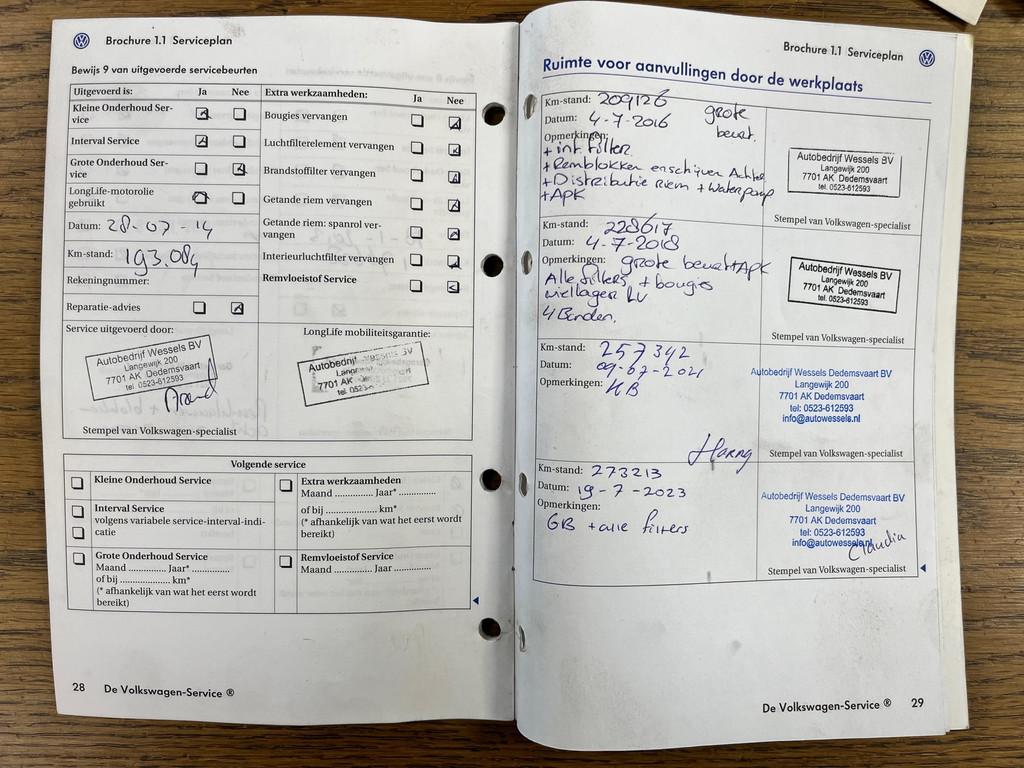 Brochure 1.1 Serviceplan
Bewijs 9 van uitgevoerde servicebeurten
Uitgevoerd is: Ja Nee
Kleine Onderhoud Ser-
vice
Interval Service
Grote Onderhoud Ser-
vice
LongLife-motorolie
gebruikt
Datum: 28-07-14
Km-stand: 193.084
Rekeningnummer:
Reparatie-advies
Extra werkzaamheden: Ja Nee
Bougies vervangen
Luchtfilterelement vervangen
Brandstoffilter vervangen
Getande riem vervangen
Getande riem: spanrol ver-
vangen
Interieurluchtfilter vervangen
Remvloeistof Service
Service uitgevoerd door:
Autobedrijf Wessels BV
Langewijk 200
7701 AK Dedemsvaart
tel. 0523-612593
Stempel van Volkswagen-specialist
LongLife mobiliteitsgarantie:
Autobedrijf Wessels BV
7701 AK
Stempel van Volkswagen-specialist
Volgende service
Kleine Onderhoud Service
Interval Service
volgens variabele service-interval-indi-
catie
Grote Onderhoud Service
Maand .............. Jaar* ..............
of bij .................... km*
(* afhankelijk van wat het eerst wordt
bereikt)
Extra werkzaamheden
Maand .............. Jaar* ..............
of bij .................... km*
(* afhankelijk van wat het eerst wordt
bereikt)
Remvloeistof Service
Maand .............. Jaar ..............
28 De Volkswagen-Service ®
Brochure 1.1 Serviceplan
Ruimte voor aanvullingen door de werkplaats
Km-stand: 209126 grote
Datum: 4-7-2016 beurt.
Opmerkingen:
+ int. filter.
+ Remblokken en schijven Achter
+ Distributie riem + Waterpomp
+ APK
Autobedrijf Wessels BV
Langewijk 200
7701 AK Dedemsvaart
tel. 0523-612593
Stempel van Volkswagen-specialist
Km-stand: 228617
Datum: 4-7-2018
Opmerkingen: grote beurt+APK
Alle filters + bougies
wiellager LV
4 Banden.
Autobedrijf Wessels BV
Langewijk 200
7701 AK Dedemsvaart
tel. 0523-612593
Stempel van Volkswagen-specialist
Km-stand: 257342
Datum: 09-07-2021
Opmerkingen: KB
Harry
Autobedrijf Wessels Dedemsvaart BV
Langewijk 200
7701 AK Dedemsvaart
tel: 0523-612593
info@autowessels.nl
Stempel van Volkswagen-specialist
Km-stand: 273213
Datum: 19-7-2023
Opmerkingen:
GB + alle filters
Autobedrijf Wessels Dedemsvaart BV
Langewijk 200
7701 AK Dedemsvaart
tel: 0523-612593
info@autowessels.nl
Claudia
Stempel van Volkswagen-specialist
De Volkswagen-Service ® 29